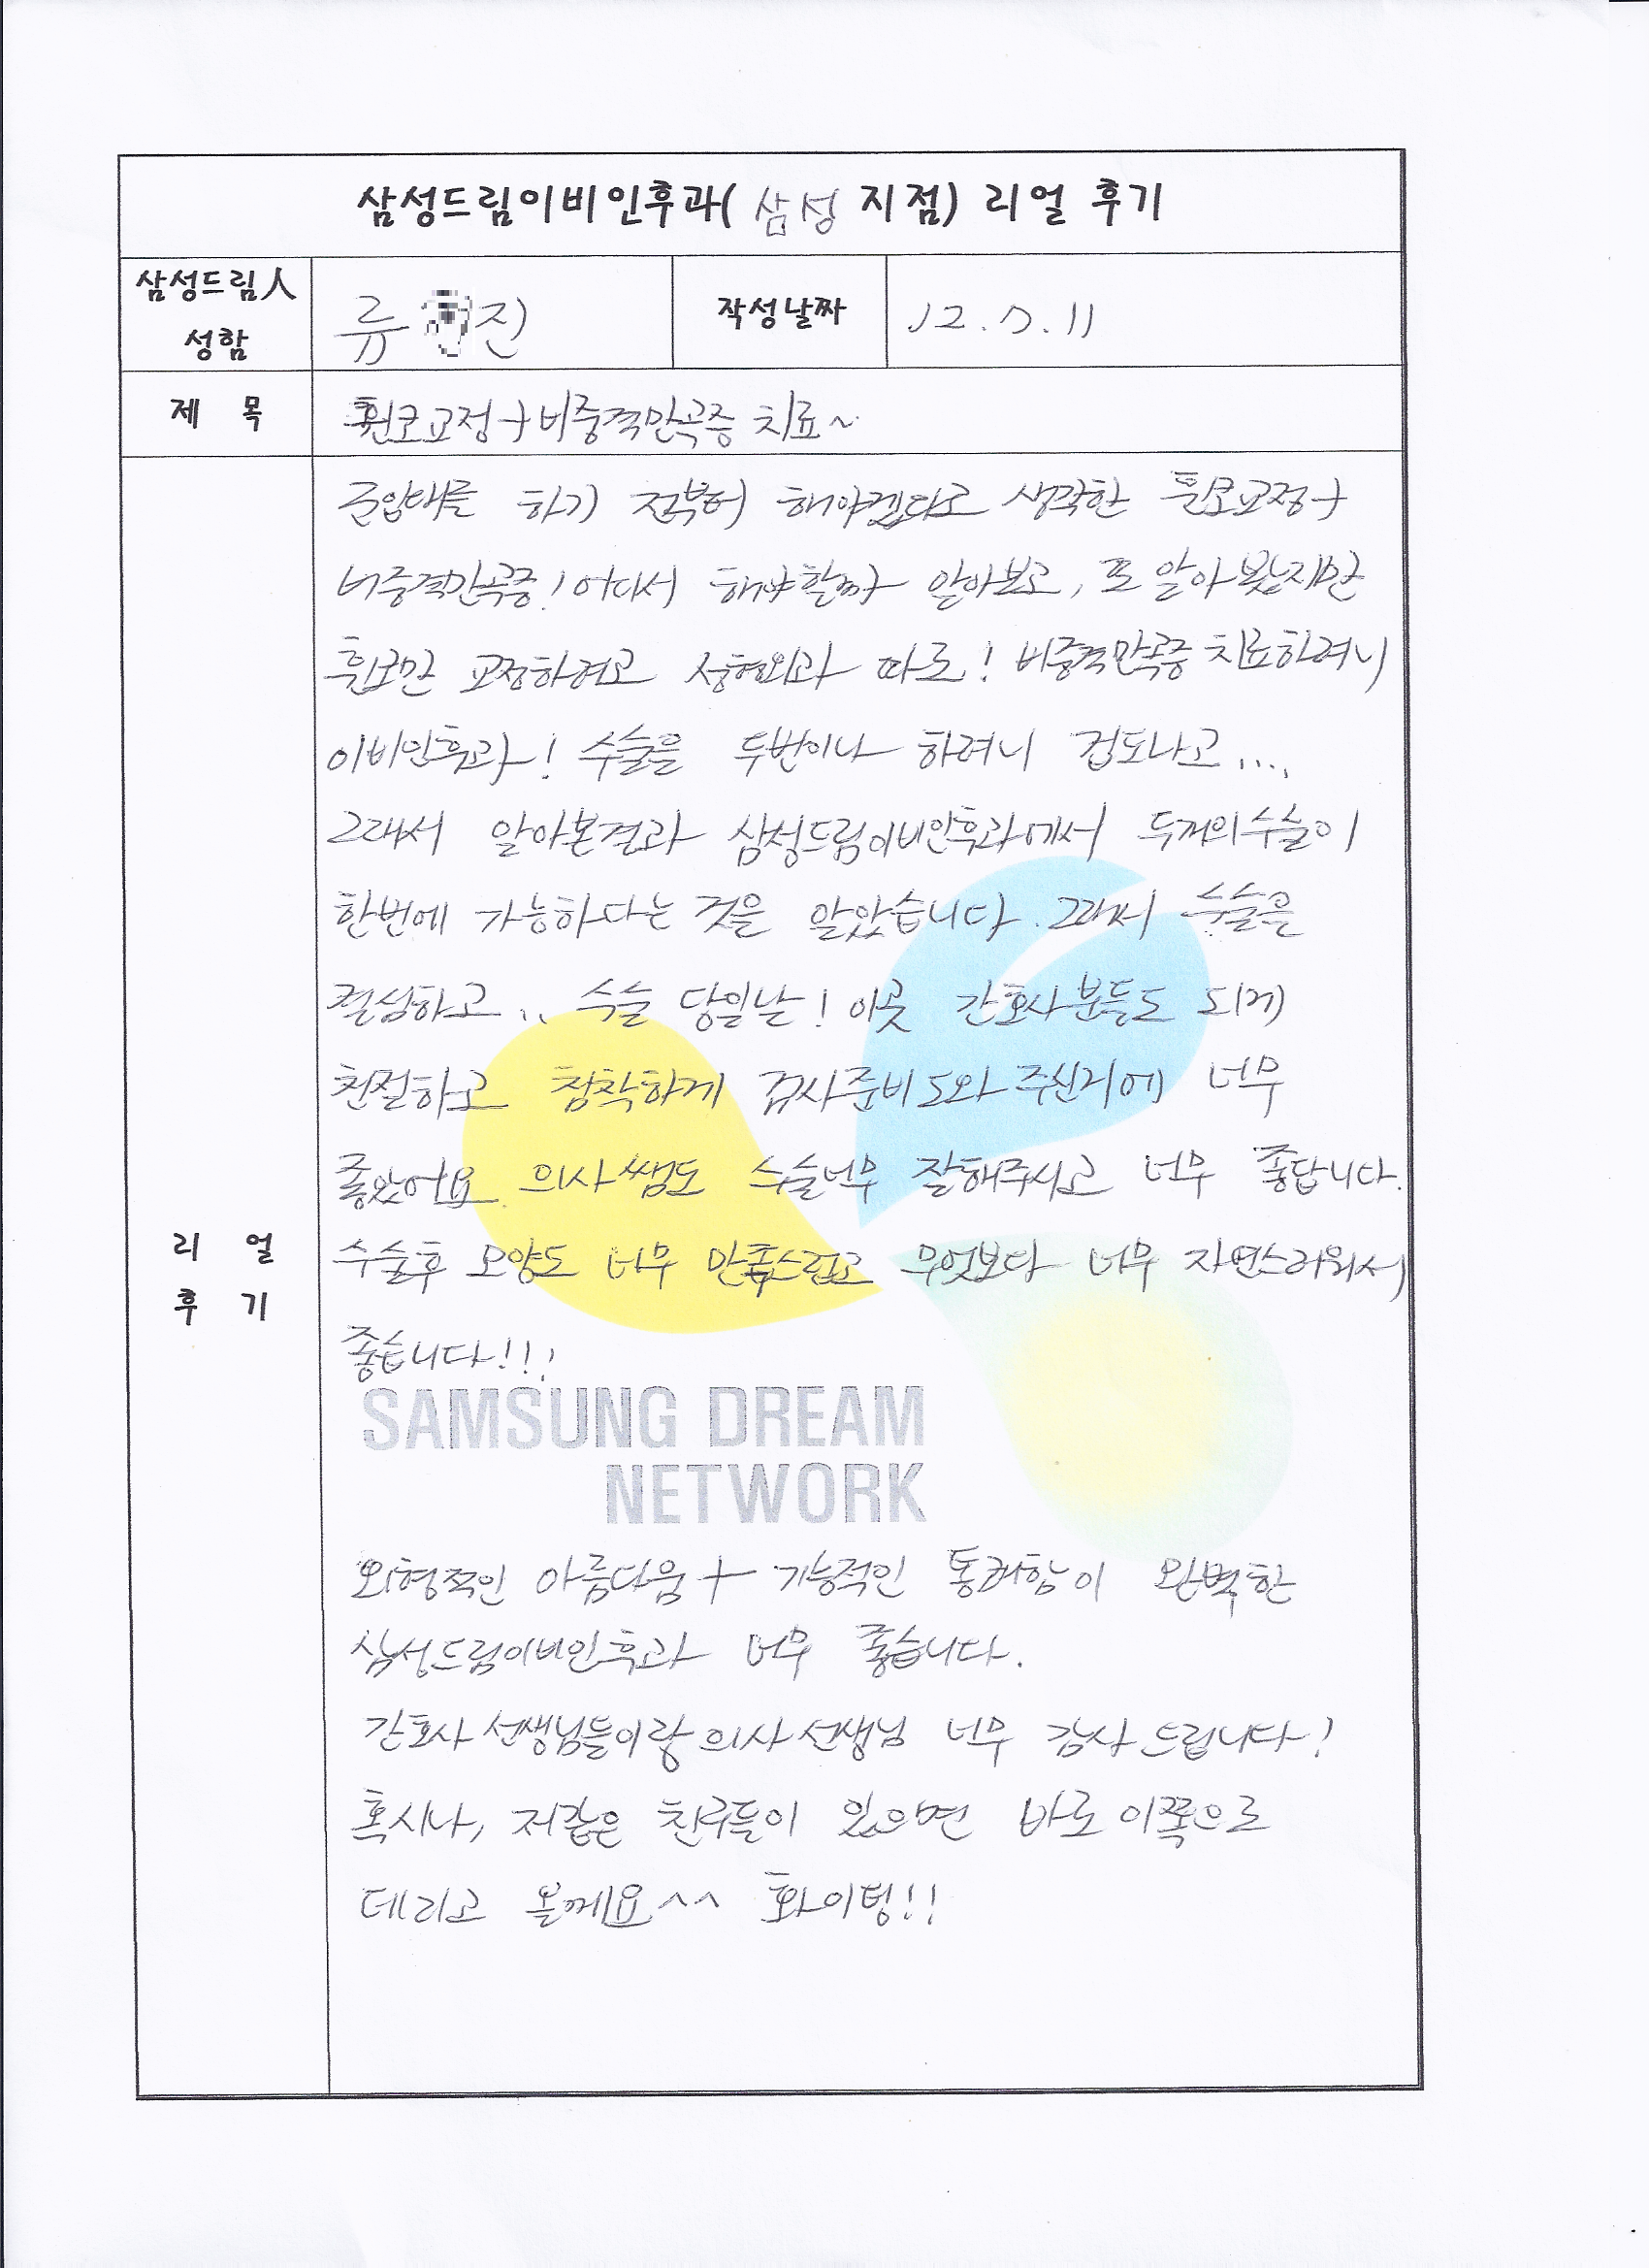 삼성드림이비인후과( 삼성 지점) 리얼 후기
삼성드림人
성함
류 진
작성날짜
12.7.11
제 목
휜코교정+비중격만곡증 치료~
졸업때를 하기 전부터 해야겠다고 생각한 휜코교정+
비중격만곡증! 어디서 해야할까 알아보고, 또 알아봤지만
휜코만 교정하려고 성형외과 따로! 비중격만곡증 치료하려니
이비인후과! 수술을 두번이나 하려니 겁도나고....
그래서 알아본결과 삼성드림이비인후과에서 두개의수술이
한번에 가능하다는 것을 알았습니다. 그래서 수술을
결심하고.. 수술 당일날! 이곳 간호사분들도 되게
친절하고 침착하게 검사준비 도와주신거에 너무
좋았어요 의사쌤도 수술너무 잘해주시고 너무 좋답니다.
수술후 모양도 너무 만족스럽고 무엇보다 너무 자연스러워서
좋습니다!!!
SAMSUNG DREAM
NETWORK
외형적인 아름다움+기능적인 통쾌함이 완벽한
삼성드림이비인후과 너무 좋습니다.
간호사 선생님들이랑 의사선생님 너무 감사 드립니다!
혹시나, 저같은 친구들이 있으면 바로 이쪽으로
데리고 올께요^^ 화이팅!!
리 얼
후 기